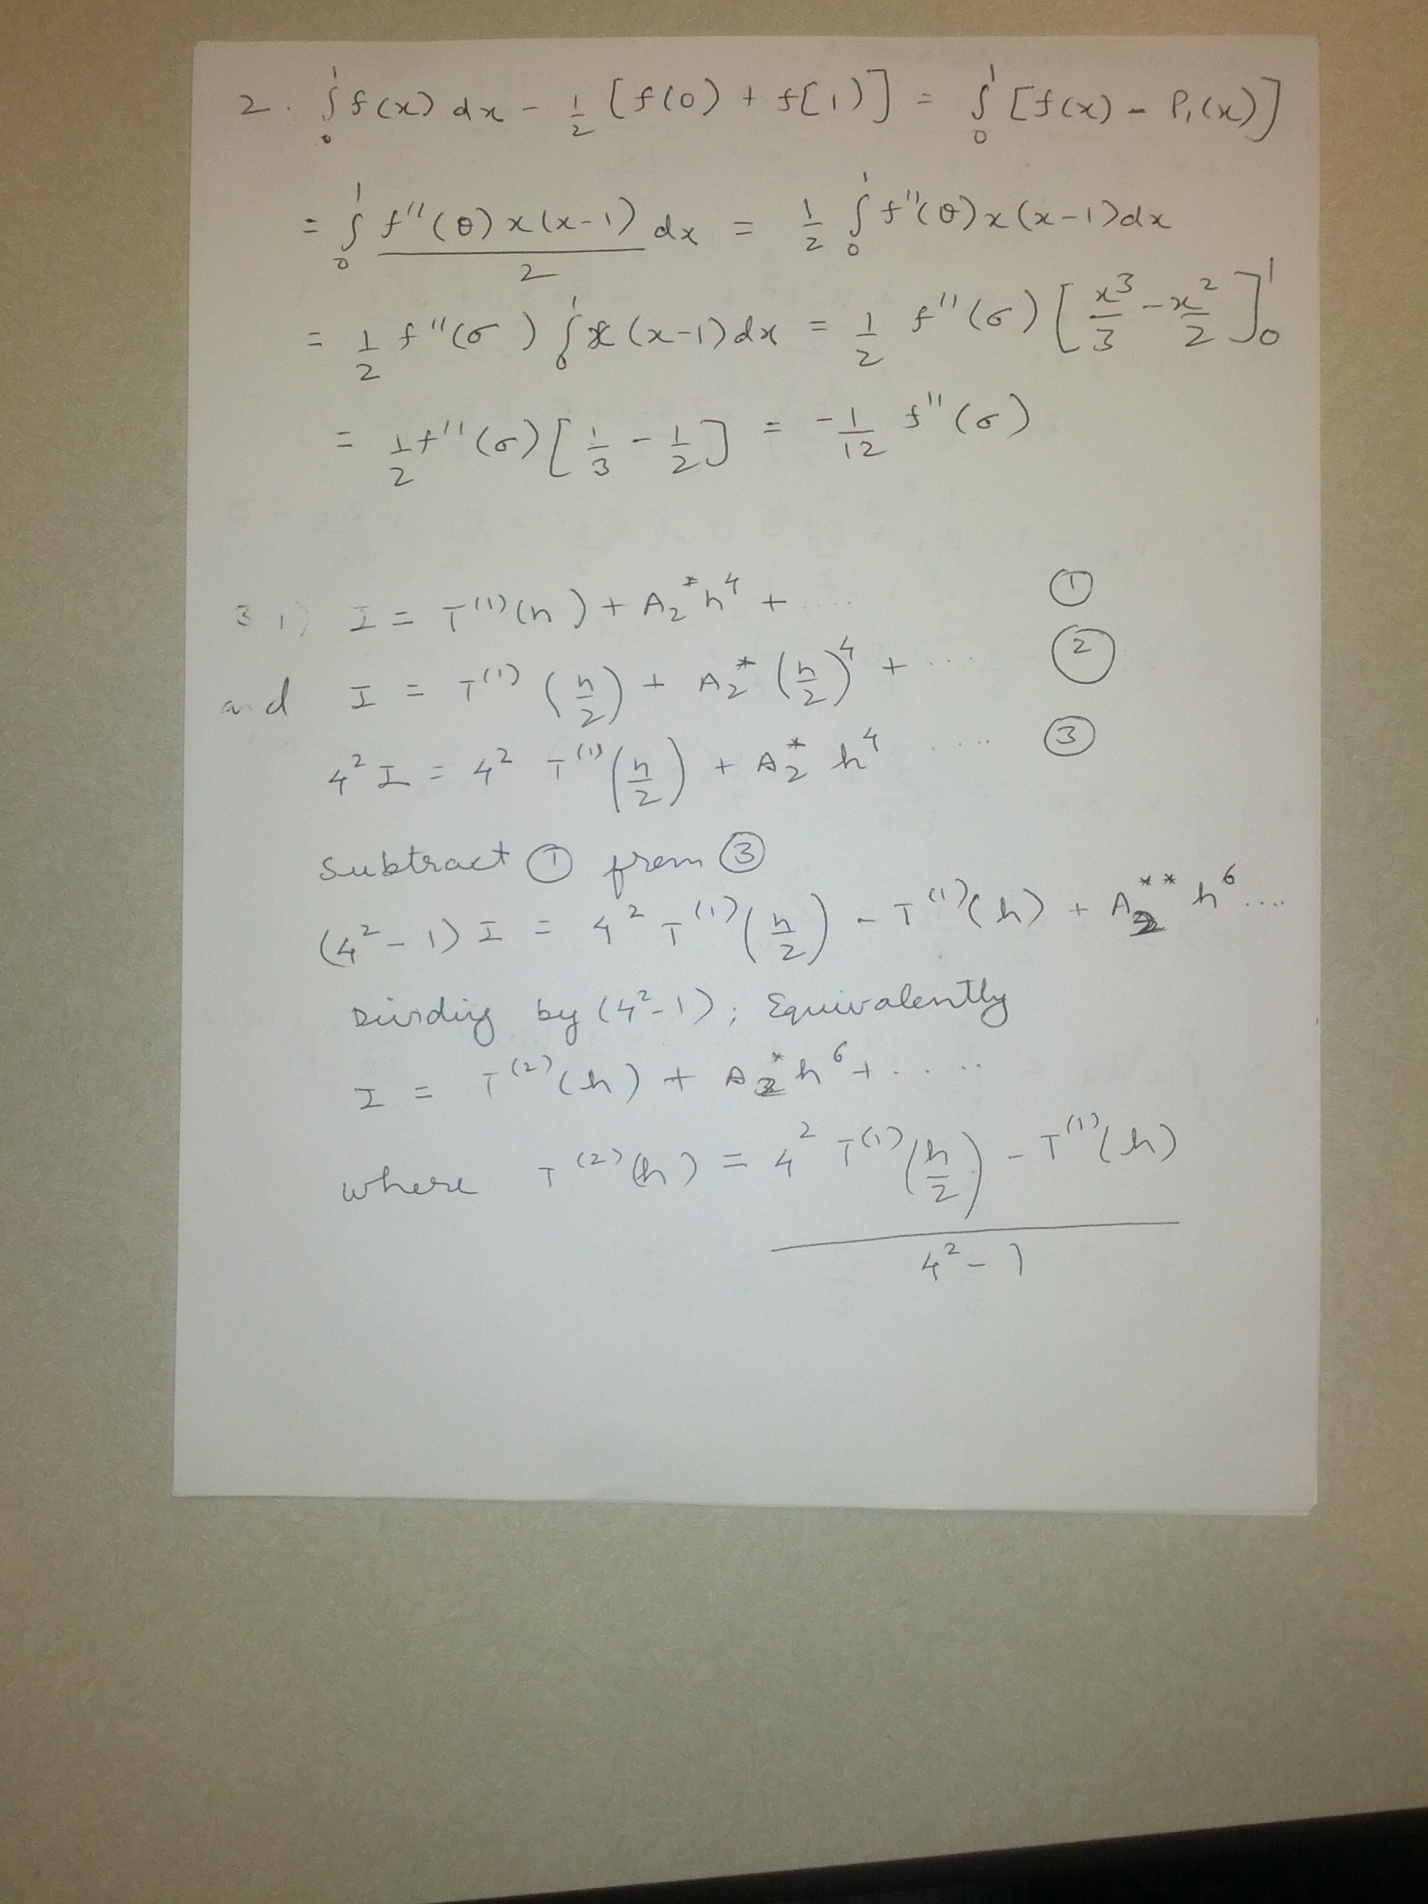 2. ∫₀¹ f(x) dx - 1/2 [f(0) + f[1)] = ∫₀¹ [f(x) - P₁(x)]
= ∫₀¹ f''(θ) x(x-1)/2 dx = 1/2 ∫₀¹ f''(θ) x(x-1)dx
= 1/2 f''(σ) ∫₀¹ x(x-1)dx = 1/2 f''(σ) [x³/3 - x²/2]₀¹
= 1/2 f''(σ) [1/3 - 1/2] = -1/12 f''(σ)
3 1) I = T⁽¹⁾(h) + A₂* h⁴ + .... ①
and I = T⁽¹⁾(h/2) + A₂* (h/2)⁴ + .... ②
4² I = 4² T⁽¹⁾(h/2) + A₂* h⁴ .... ③
Subtract ① from ③
(4² - 1) I = 4² T⁽¹⁾(h/2) - T⁽¹⁾(h) + A₃** h⁶ ....
Dividing by (4²-1); Equivalently
I = T⁽²⁾(h) + A₃* h⁶ + .....
where T⁽²⁾(h) = 4² T⁽¹⁾(h/2) - T⁽¹⁾(h)
4² - 1